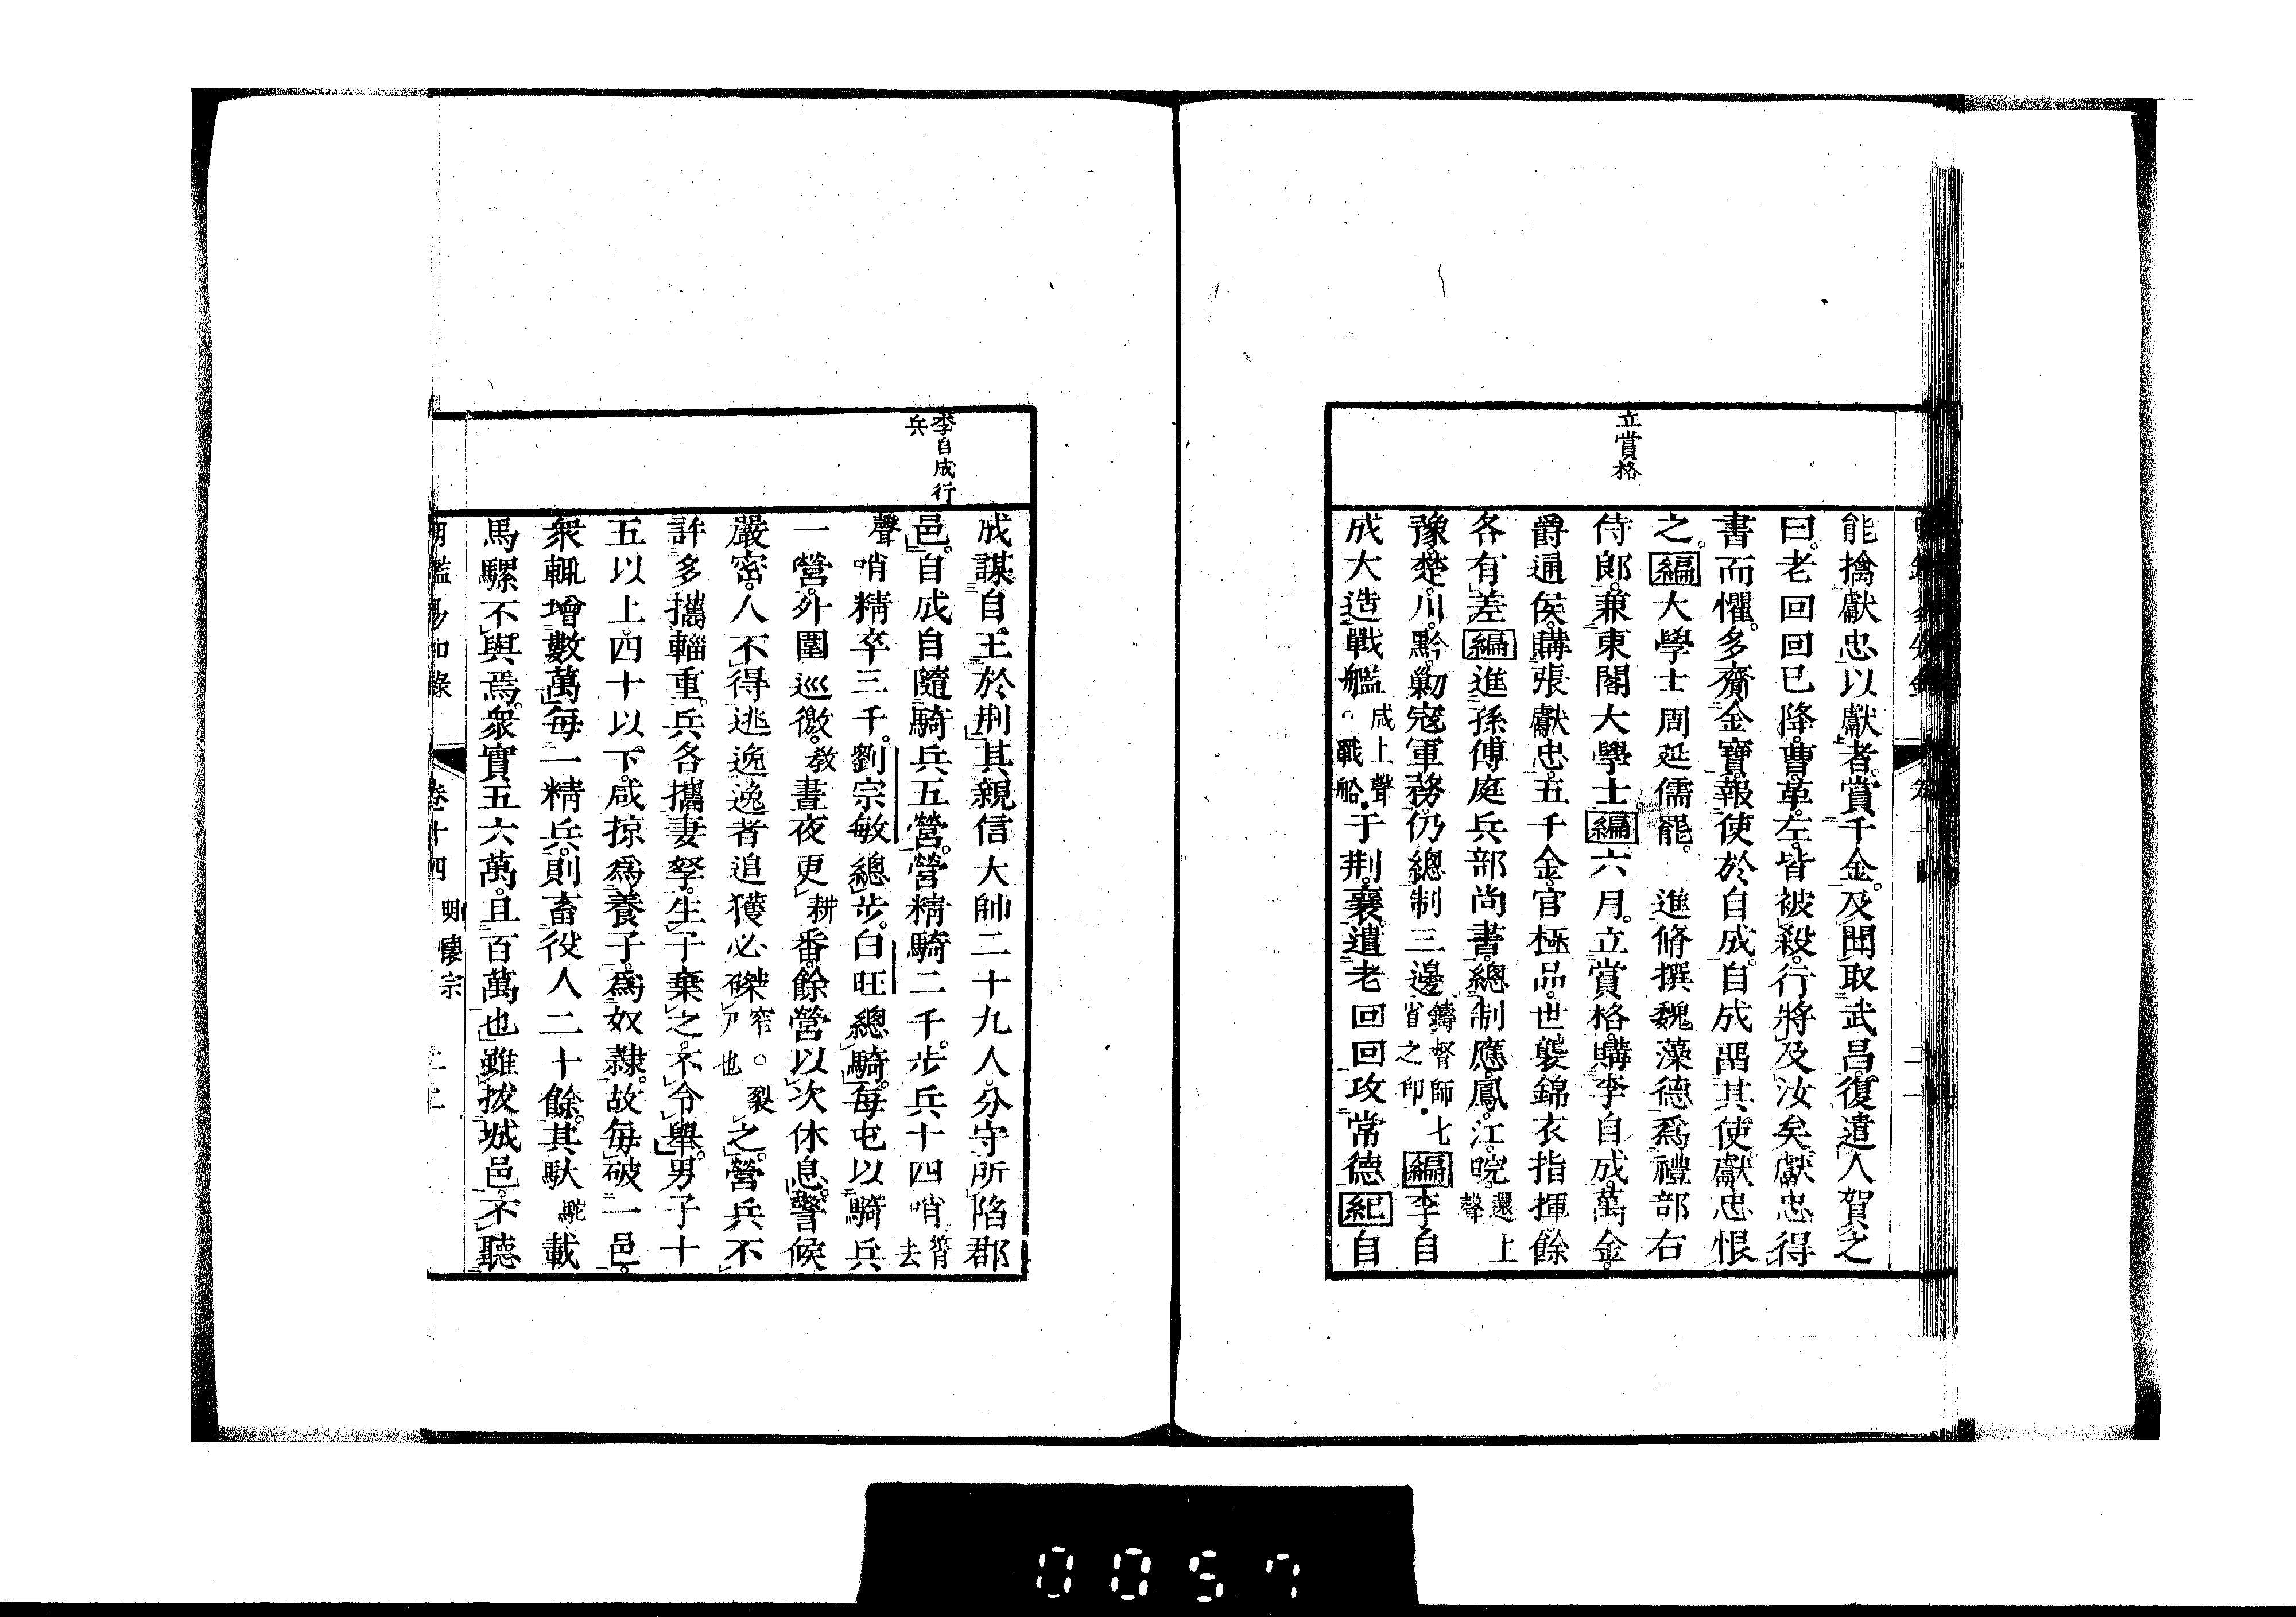 立賞格
能擒獻忠以獻者。賞千金。及聞取武昌。復遣人賀之
曰。老回回已降。曹。革。左。皆被殺。行將及汝矣。獻忠得
書而懼。多齎金寶。報使於自成。自成畱其使。獻忠恨
之。編大學士周延儒罷。 進脩撰魏藻德爲禮部右
侍郎。兼東閣大學士編六月。立賞格。購李自成。萬金。
爵通侯。購張獻忠。五千金。官極品。世襲錦衣指揮。餘
各有差編進孫傅庭兵部尚書。總制應。鳳。江。皖。還上聲
豫。楚。川。黔。勦寇軍務。仍總制三邊鑄督師七省之印。編李自
成大造戰艦咸上聲。戰船。于荆。襄。遣老回回攻常德紀自
李自成行兵
成謀自王於荆。其親信大帥二十九人。分守所陷郡
邑。自成自隨騎兵五營。營精騎二千。步兵十四哨筲去
聲哨精卒三千。劉宗敏總步。白旺總騎。每屯以騎兵
一營。外圍巡徼。教晝夜更耕番。餘營以次休息。警候
嚴密。人不得逃逸。逸者追獲必磔窄。裂尸也之。營兵不
許多攜輜重。兵各攜妻孥。生子棄之。不令舉。男子十
五以上。四十以下。咸掠爲養子。爲奴隷。故每破一邑。
衆輒增數萬。每一精兵。則畜役人二十餘。其馱駝載
馬騾不與焉。衆實五六萬。且百萬也。雖拔城邑。不聽
卷十四 明懷宗